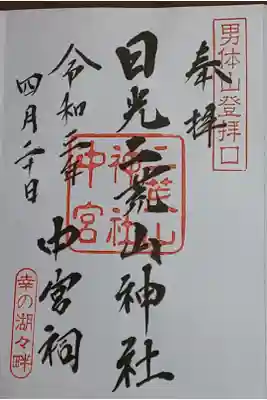 男体山登拝口
奉拝
日光二荒山神社
二荒山
神社
中宮
中宮祠
令和二年
四月二十日
幸の湖々畔